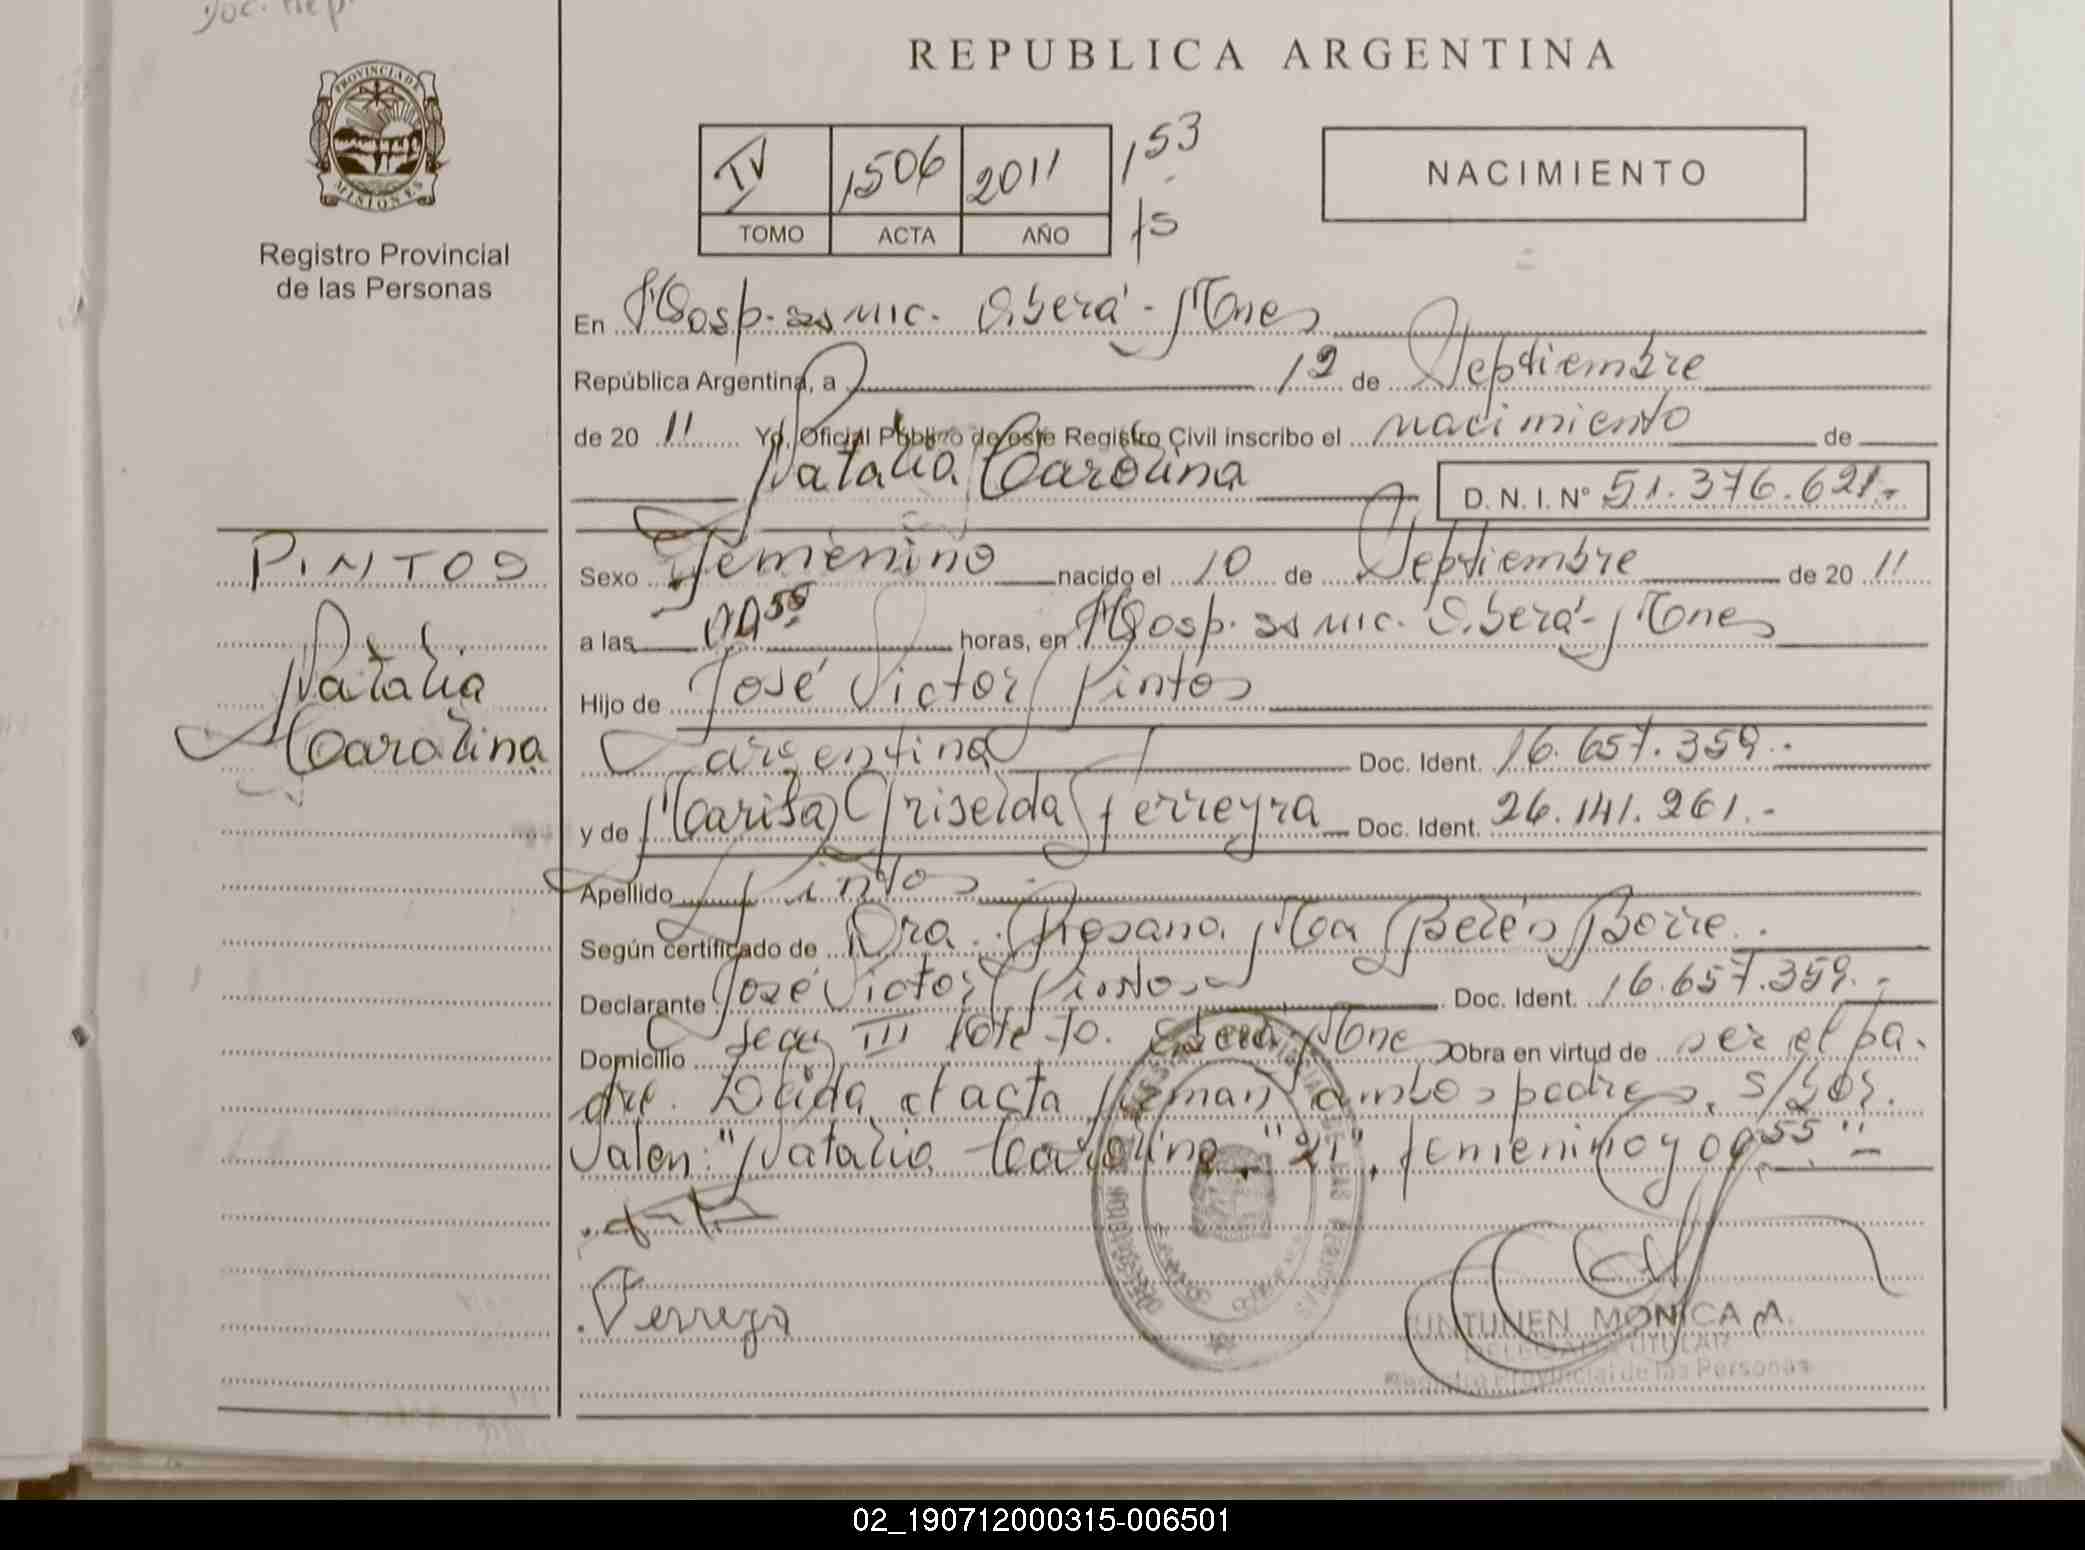 Doc. Rep.
REPUBLICA ARGENTINA
PROVINCIA DE
MISIONES
Registro Provincial
de las Personas
IV 1506 2011 153
TOMO ACTA AÑO
NACIMIENTO
En Hosp. ss mic. Oberá - Mones
República Argentina, a 12 de Septiembre
de 20 11 Yo, Oficial Público de este Registro Civil inscribo el nacimiento de
Natalia Carolina D. N. I. Nº 51.376.621.-
PINTOS
Natalia
Carolina
Sexo Femenino nacido el 10 de Septiembre de 20 11
a las 09 55 horas, en Hosp. ss mic. Oberá - Mones
Hijo de José Victor Pintos
argentina Doc. Ident. 16.657.359.-
y de Marisa Griselda Ferreyra Doc. Ident. 26.141.261.-
Apellido Pintos
Según certificado de Dra. Rosana Ma Belén Borre.
Declarante José Victor Pintos Doc. Ident. 16.657.359.-
Domicilio Secc III lote 70. Mones Obra en virtud de ser el pa-
dre. Leida el acta firman ambos padres. s/bor.
Valen: "Natalia Carolina, "21", femenino y 09 55"-
Ferreyra
UNTUNEN MONICA A.
DELEGADA TITULAR
Registro Provincial de las Personas
02_190712000315-006501